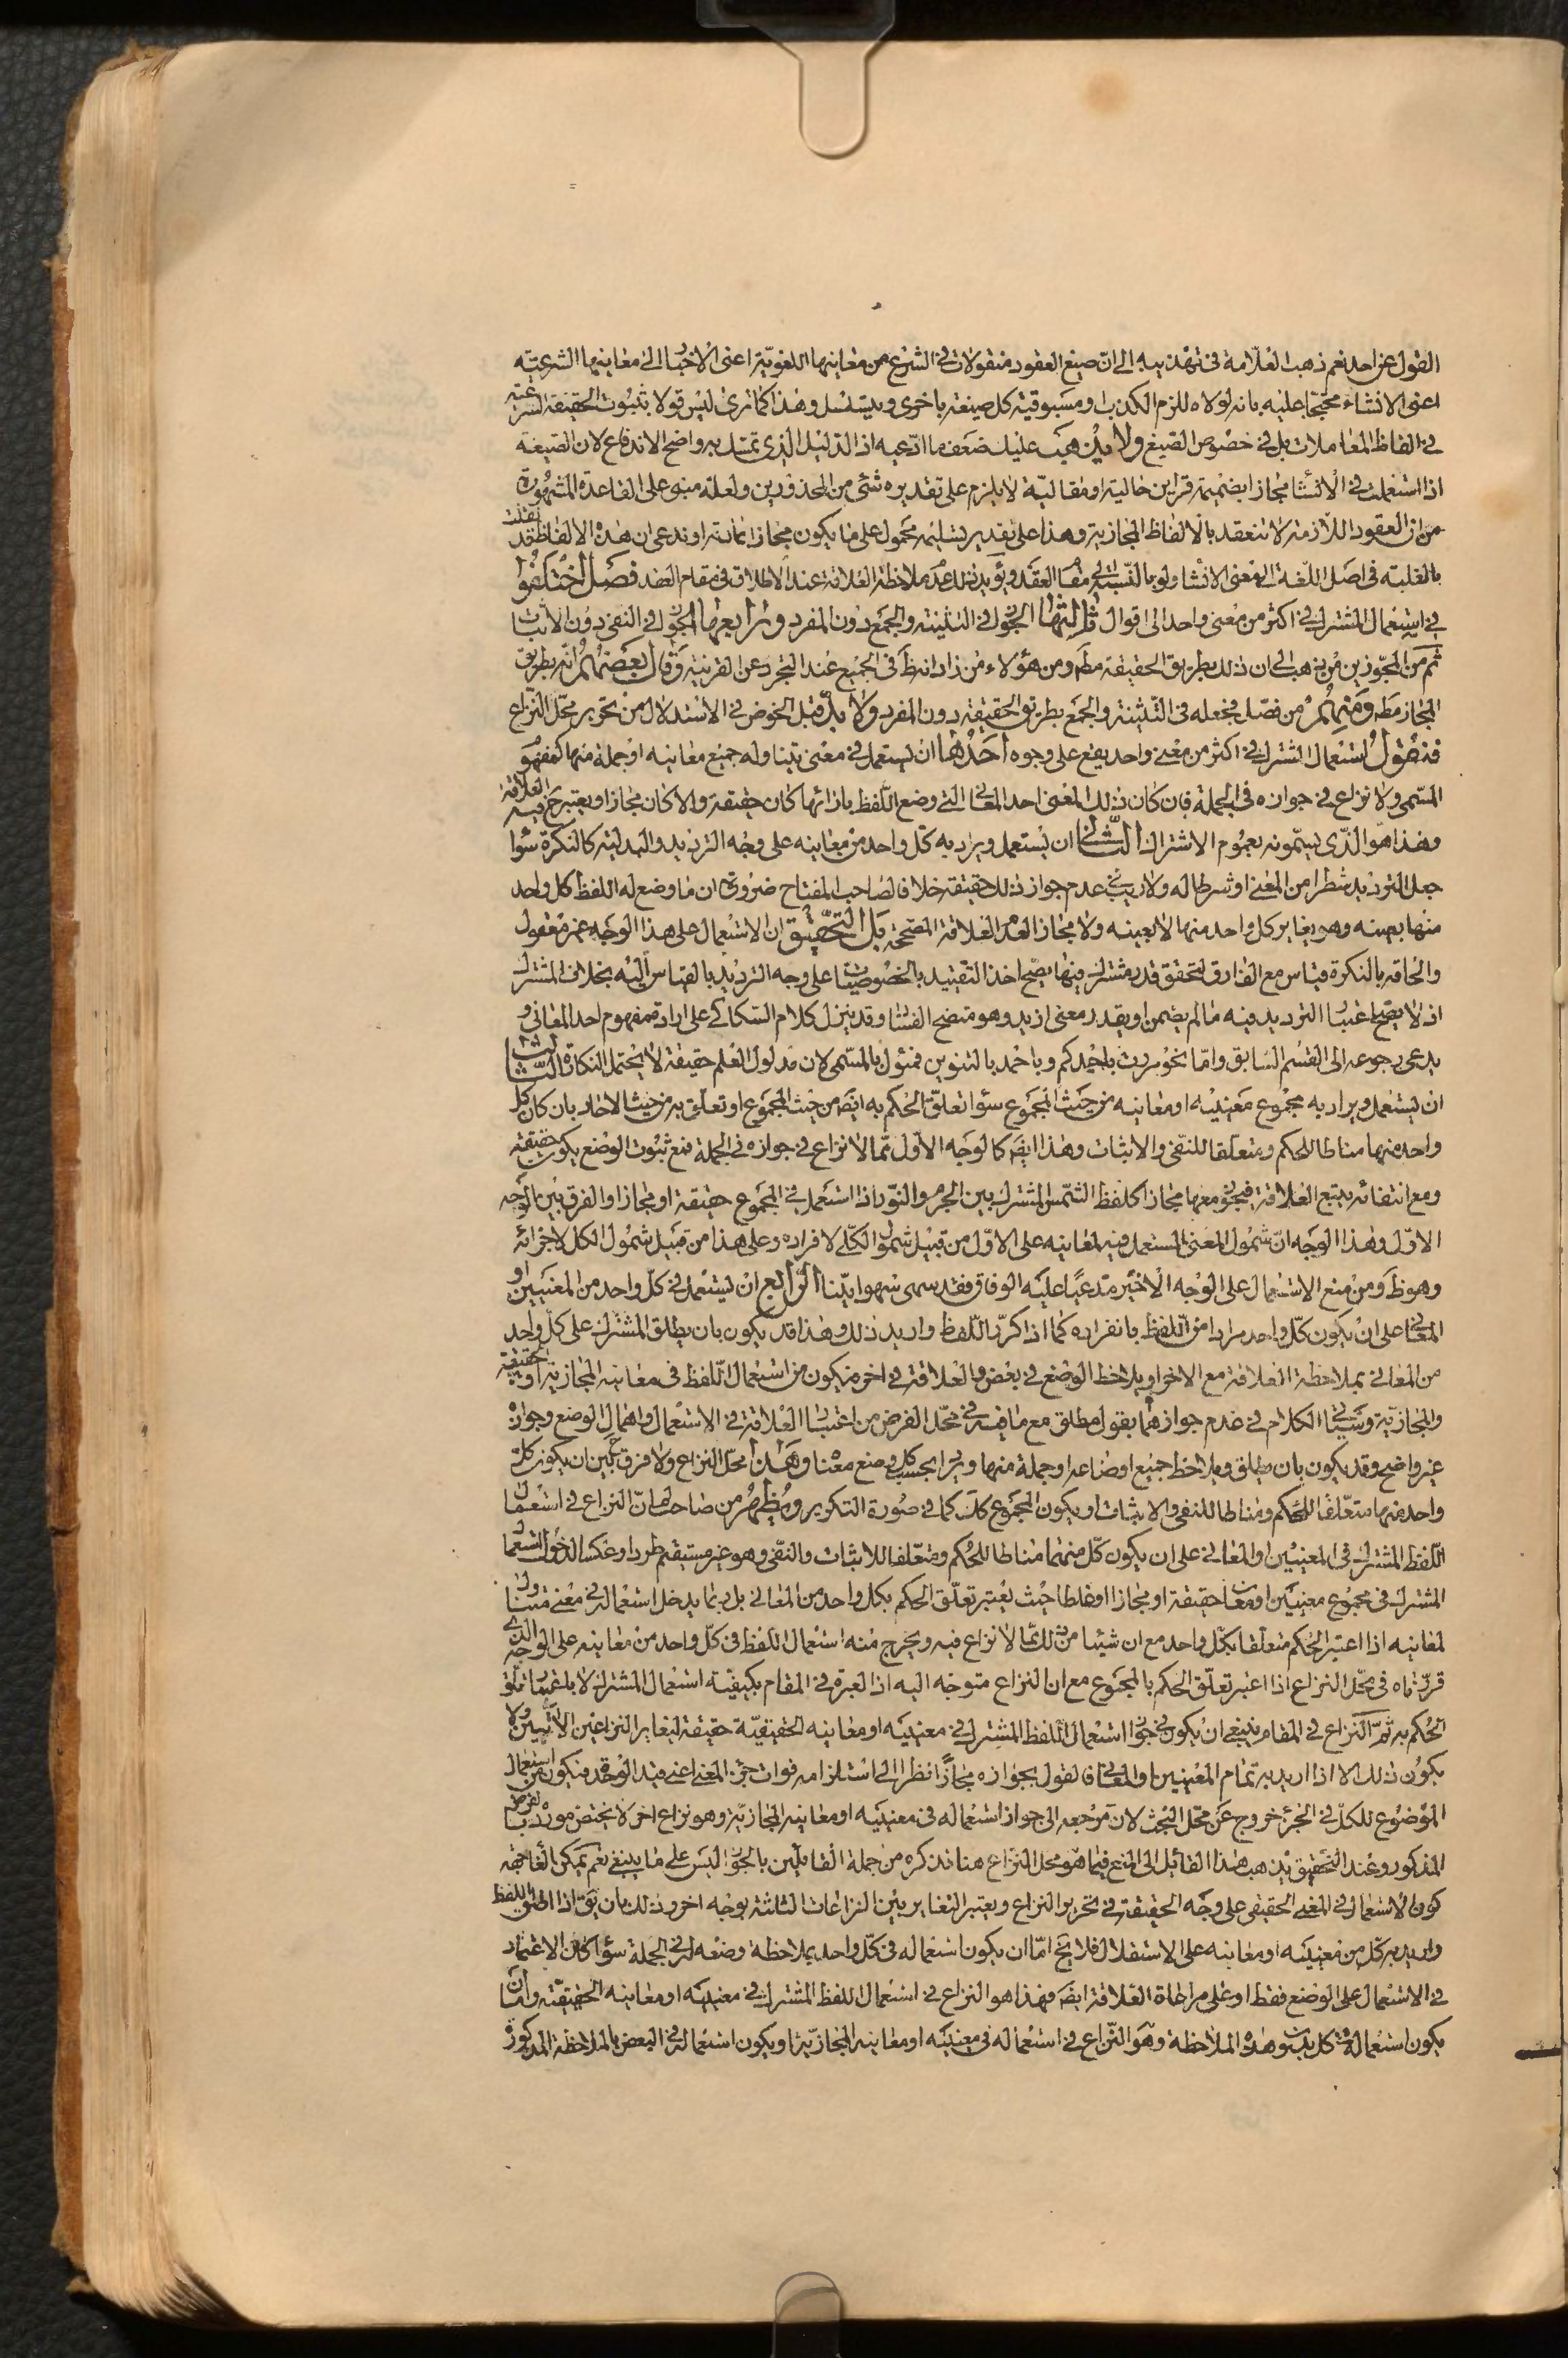 القول عن احد نعم ذهب العلامة فى تهذيبه الى ان صيغ العقود منقولات فى الشرع من معانيها اللغوية اعنى الاخبار الى معانيها الشرعيّة
اعنى الانشاء محتجا عليه بانه لولاه للزم الكذب او مسبوقية كل صيغة باخرى ويتسلسل وهذا كما ترى ليس قولا بثبوت الحقيقة الشرعية
فى الفاظ المعاملات بل فى خصوص الصيغ ولا يذهب عليك ضعف ما ادّعيه اذ الدليل الذى تمسّك به واضح الاندفاع لان الصيغة
اذا استعملت فى الانشاء مجازا بضميمة قراين حالية او مقالية لا يلزم على تقديره شئ من المحذورين ولعله مبنى على القاعدة المشهورة
من ان العقود اللازمة لا تنعقد بالالفاظ المجازية وهذا على تقدير تسليمه محمول على ما يكون مجازا بالذات او ندعى ان هذه الالفاظ قد نقلت
بالغلبة فى اصل اللغة الى معنى الانشاء ولو بالنسبة الى مقام العقد ويؤيد ذلك عدم ملاحظة العلاقة عند الاطلاق فى مقام العقد فصل اختلفوا
فى استعمال المشترك فى اكثر من معنى واحد الى اقوال ثالثها الجواز فى التثنية والجمع دون المفرد ورابعها الجواز فى النفى دون الاثبات
ثم من المجوّزين من يذهب الى ان ذلك بطريق الحقيقة مطه ومن هؤلاء من زاد انه ظ فى الجميع عند التجرد عن القرنية وقال بعضهم انّه بطريق
المجاز مطه ومنهم من فصّل فجعله فى التّثنية والجمع بطريق الحقيقة دون المفرد ولا بدّ قبل الخوض فى الاستدلال من تحرير محلّ النّزاع
فنقول استعمال المشترك فى اكثر من معنى واحد يقع على وجوه احدها ان يستعمل فى معنى يتناوله جميع معانيه او جملة منها كمفهوم
المسمى ولا نزاع فى جوازه فى الجملة فان كان ذلك المعنى احد المعانى التى وضع اللّفظ بازائها كان حقيقة والا كان مجازا ويعتبر ح فيه العلاقة
وهذا هو الذى يسمّونه بعموم الاشتراك الثانى ان يستعمل ويراد به كلّ واحد من معانيه على وجه الترديد والبدلية كالنكرة سواء
جعل الترديد شطرا من المعنى او شرطا له ولا ريب فى عدم جواز ذلك حقيقة خلافا لصاحب المفتاح ضرورة ان ما وضع له اللفظ كل واحد
منها بعينه وهو يغاير كل واحد منها لا بعينه ولا مجازا لعدم العلاقة المصححة بل التحقيق ان الاستعمال على هذا الوجه غير معقول
والحاقه بالنكرة قياس مع الفارق لتحقق قدر مشترك فيها يصح اخذ التقييد بالخصوصيات على وجه الترديد بالقياس اليه بخلاف المشترك
اذ لا يصح اعتبار الترديد فيه ما لم يضمن او يقدر معنى ازيد وهو متضح الفساد وقد ينزل كلام السكاكى على ارادة مفهوم احد المعانى و
يدعى رجوعه الى القسم السابق وامّا نحو مررت باحمدكم وباحمد بالتنوين فمئول بالمسمى لان مدلول العلم حقيقة لا يحتمل النكارة الثالث
ان يستعمل ويراد به مجموع معنييه او معانيه من حيث المجموع سواء تعلّق الحكم به ايضه من حيث المجموع او تعلّق به من حيث الاحاد بان كان كل
واحد منها مناطا للحكم ومتعلقا للنفى والاثبات وهذا ايضه كالوجه الاوّل ممّا لا نزاع فى جوازه فى الجملة فمع ثبوت الوضع يكون حقيقة
ومع انتفائه يتبع العلاقة فيجوز معها مجازا كلفظ الشّمس المشترك بين الجرم والنّور اذا استعمل فى المجموع حقيقة او مجازا والفرق بين الوجه
الاوّل وهذا الوجه انّ شمول المعنى المستعمل فيه لمعانيه على الاوّل من قبيل شمول الكلّى لافراده وعلى هذا من قبيل شمول الكل لاجزائه
وهو ظ ومن منع الاستعمال على الوجه الاخير مدعيًا عليه الوفاق فقد سهى سهوا بيّنا الرابع ان يستعمل فى كلّ واحد من المعنيين او
المعانى على ان يكون كلّ واحد مرادا من اللّفظ بانفراده كما اذا كرّر اللّفظ واريد ذلك وهذا قد يكون بان يطلق المشترك على كلّ واحد
من المعانى بملاحظة العلاقة مع الاخر او يلاحظ الوضع فى بعض والعلاقة فى اخر فيكون من استعمال اللّفظ فى معانيه المجازية او الحقيقية
والمجازية وسياتى الكلام فى عدم جوازهما بقول مطلق مع ما فيه فى محلّ الفرض من اعتبار العلاقة فى الاستعمال واهمال الوضع وجوازه
غير واضح وقد يكون بان يطلق ويلاحظ جميع اوضاعه او جملة منها ويراد بحسب كل وضع معناه وهذا محلّ النزاع ولا فرق ح بين ان يكون كلّ
واحد منها متعلّقا للحكم ومناطا للنفى والاثبات او يكون المجموع كك كما فى صورة التكرير ويظهر من صاحب لم انّ النزاع فى استعمال
اللّفظ المشترك فى المعنيين او المعانى على ان يكون كلّ منهما مناطا للحكم ومتعلّقا للاثبات والنّفى وهو غير مستقيم طردا وعكسا لدخول استعمال
المشترك فى مجموع معنيين او معان حقيقة او مجازا او غلطا حيث يعتبر تعلّق الحكم بكل واحد من المعانى بل ربّما يدخل استعماله فى معنى متناول
لمعانيه اذا اعتبر الحكم متعلّقا بكلّ واحد مع ان شيئا من ذلك ممّا لا نزاع فيه ويخرج منه استعمال اللّفظ فى كلّ واحد من معانيه على الوجه الذى
قررناه فى محلّ النزاع اذا اعتبر تعلّق الحكم بالمجموع مع ان النزاع متوجه اليه اذ العبرة فى المقام بكيفية استعمال المشترك لا باعتبار تعلّق
الحكم به ثمّ النّزاع فى المقام ينبغى ان يكون فى جواز استعمال اللّفظ المشترك فى معنييه او معانيه الحقيقيّة حقيقة ليغاير النزاعين الاتيين ولا
يكون ذلك الا اذا اريد به تمام المعنيين او المعانى فالقول بجوازه مجازًا نظرا الى استلزامه فوات جزء المعنى اعنى قيد الوحدة فيكون من استعمال
الموضوع للكلّ فى الجزء خروج عن محلّ البحث لان مرجعه الى جواز استعماله فى معنييه او معانيه المجازيّة وهو نزاع اخر لا يختص مورده بالفرض
المذكور وعند التحقيق يذهب هذا القائل الى المنع فيما هو محل النّزاع هنا فذكره من جملة القائلين بالجواز ليس على ما ينبغى نعم يمكن الغاء جهة
كون الاستعمال فى المعنى الحقيقى على وجه الحقيقة فى تحرير النزاع ويعتبر التغاير بين النزاعات الثلثة بوجه اخر وذلك بان يق اذا اطلق اللفظ
واريد به كلّ من معنييه او معانيه على الاستقلال فلا يخ امّا ان يكون استعماله فى كلّ واحد بملاحظة وضعه له فى الجملة سواء كان الاعتماد
فى الاستعمال على الوضع فقط او على مراعاة العلاقة ايضه فهذا هو النزاع فى استعمال اللفظ المشترك فى معنييه او معانيه الحقيقيّة وامّا ان
يكون استعماله فى كل بدون هذه الملاحظة وهو النّزاع فى استعماله فى معنييه او معانيه المجازيّة او يكون استعماله فى البعض بالملاحظة المذكورة